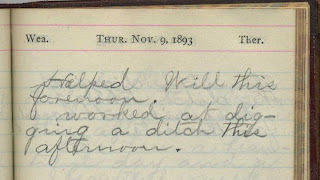 Wea. THUR. NOV. 9, 1893 Ther.
Helped Will this
forenoon.
worked at dig-
ging a ditch this
afternoon.